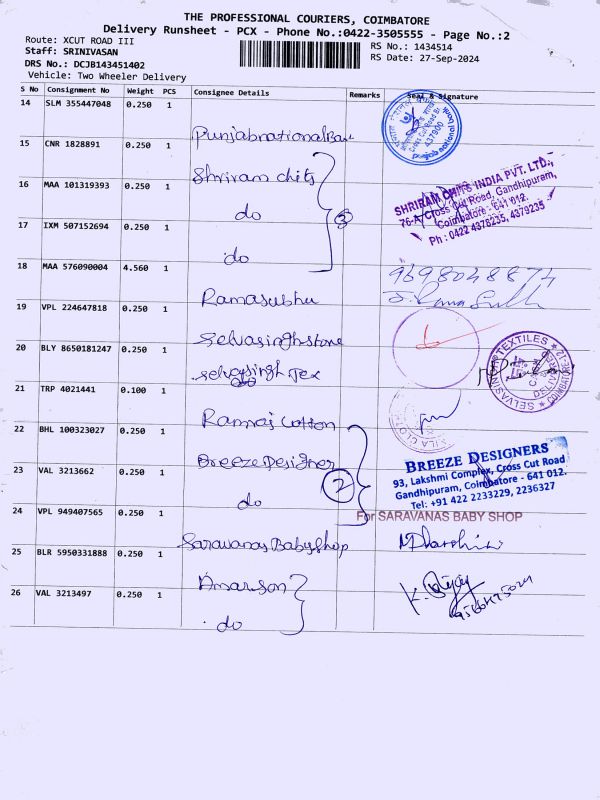 THE PROFESSIONAL COURIERS, COIMBATORE
Delivery Runsheet - PCX - Phone No.:0422-3505555 - Page No.:2
Route: XCUT ROAD III
RS No.: 1434514
Staff: SRINIVASAN
RS Date: 27-Sep-2024
DRS No.: DCJB143451402
Vehicle: Two Wheeler Delivery
S No Consignment No Weight PCS Consignee Details Remarks Seal & Signature
14 SLM 355447048 0.250 1 Punjabnational
15 CNR 1828891 0.250 1 Shriram chits
16 MAA 101319393 0.250 1 do
17 IXM 507152694 0.250 1 do
3
SHRIRAM CHITS INDIA PVT. LTD.,
76-A, Cross Cut Road, Gandhipuram,
Coimbatore - 641 012.
Ph : 0422 4376235, 4379235
18 MAA 576090004 4.560 1 Ramasubhu
19 VPL 224647818 0.250 1 Selvasinghstone
20 BLY 8650181247 0.250 1 Selvasingh Tex
21 TRP 4021441 0.100 1 Ramraj Cotton
22 BHL 100323027 0.250 1 BreezeDesigner
23 VAL 3213662 0.250 1 do
2
BREEZE DESIGNERS
93, Lakshmi Complex, Cross Cut Road
Gandhipuram, Coimbatore - 641 012.
Tel: +91 422 2233229, 2236327
24 VPL 949407565 0.250 1 Saravanas Baby Shop
For SARAVANAS BABY SHOP
25 BLR 5950331888 0.250 1
26 VAL 3213497 0.250 1 do